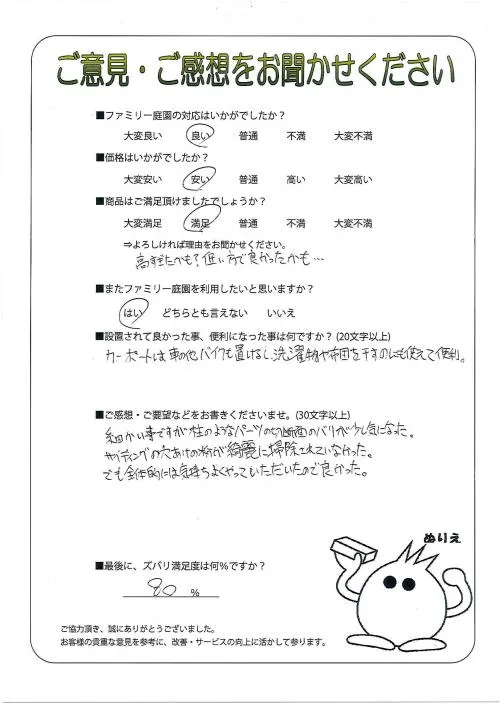 ご意見・ご感想をお聞かせください
■ファミリー庭園の対応はいかがでしたか？
大変良い 良い 普通 不満 大変不満
■価格はいかがでしたか？
大変安い 安い 普通 高い 大変高い
■商品はご満足頂けましたでしょうか？
大変満足 満足 普通 不満 大変不満
⇒よろしければ理由をお聞かせください。
高すぎたかも？低い方で良かったかも…
■またファミリー庭園を利用したいと思いますか？
はい どちらとも言えない いいえ
■設置されて良かった事、便利になった事は何ですか？(20文字以上)
カーポートは車の他バイクも置けるし、洗濯物や布団を干すのにも使えて便利。
■ご感想・ご要望などをお書きくださいませ。(30文字以上)
細かい事ですが柱のようなパーツの切断面のバリが少し気になった。
サイディングの穴あけの粉が綺麗に掃除されていなかった。
でも全体的には気持ちよくやっていただいたので良かった。
ぬりえ
■最後に、ズバリ満足度は何％ですか？
80 %
ご協力頂き、誠にありがとうございました。
お客様の貴重な意見を参考に、改善・サービスの向上に活かして参ります。